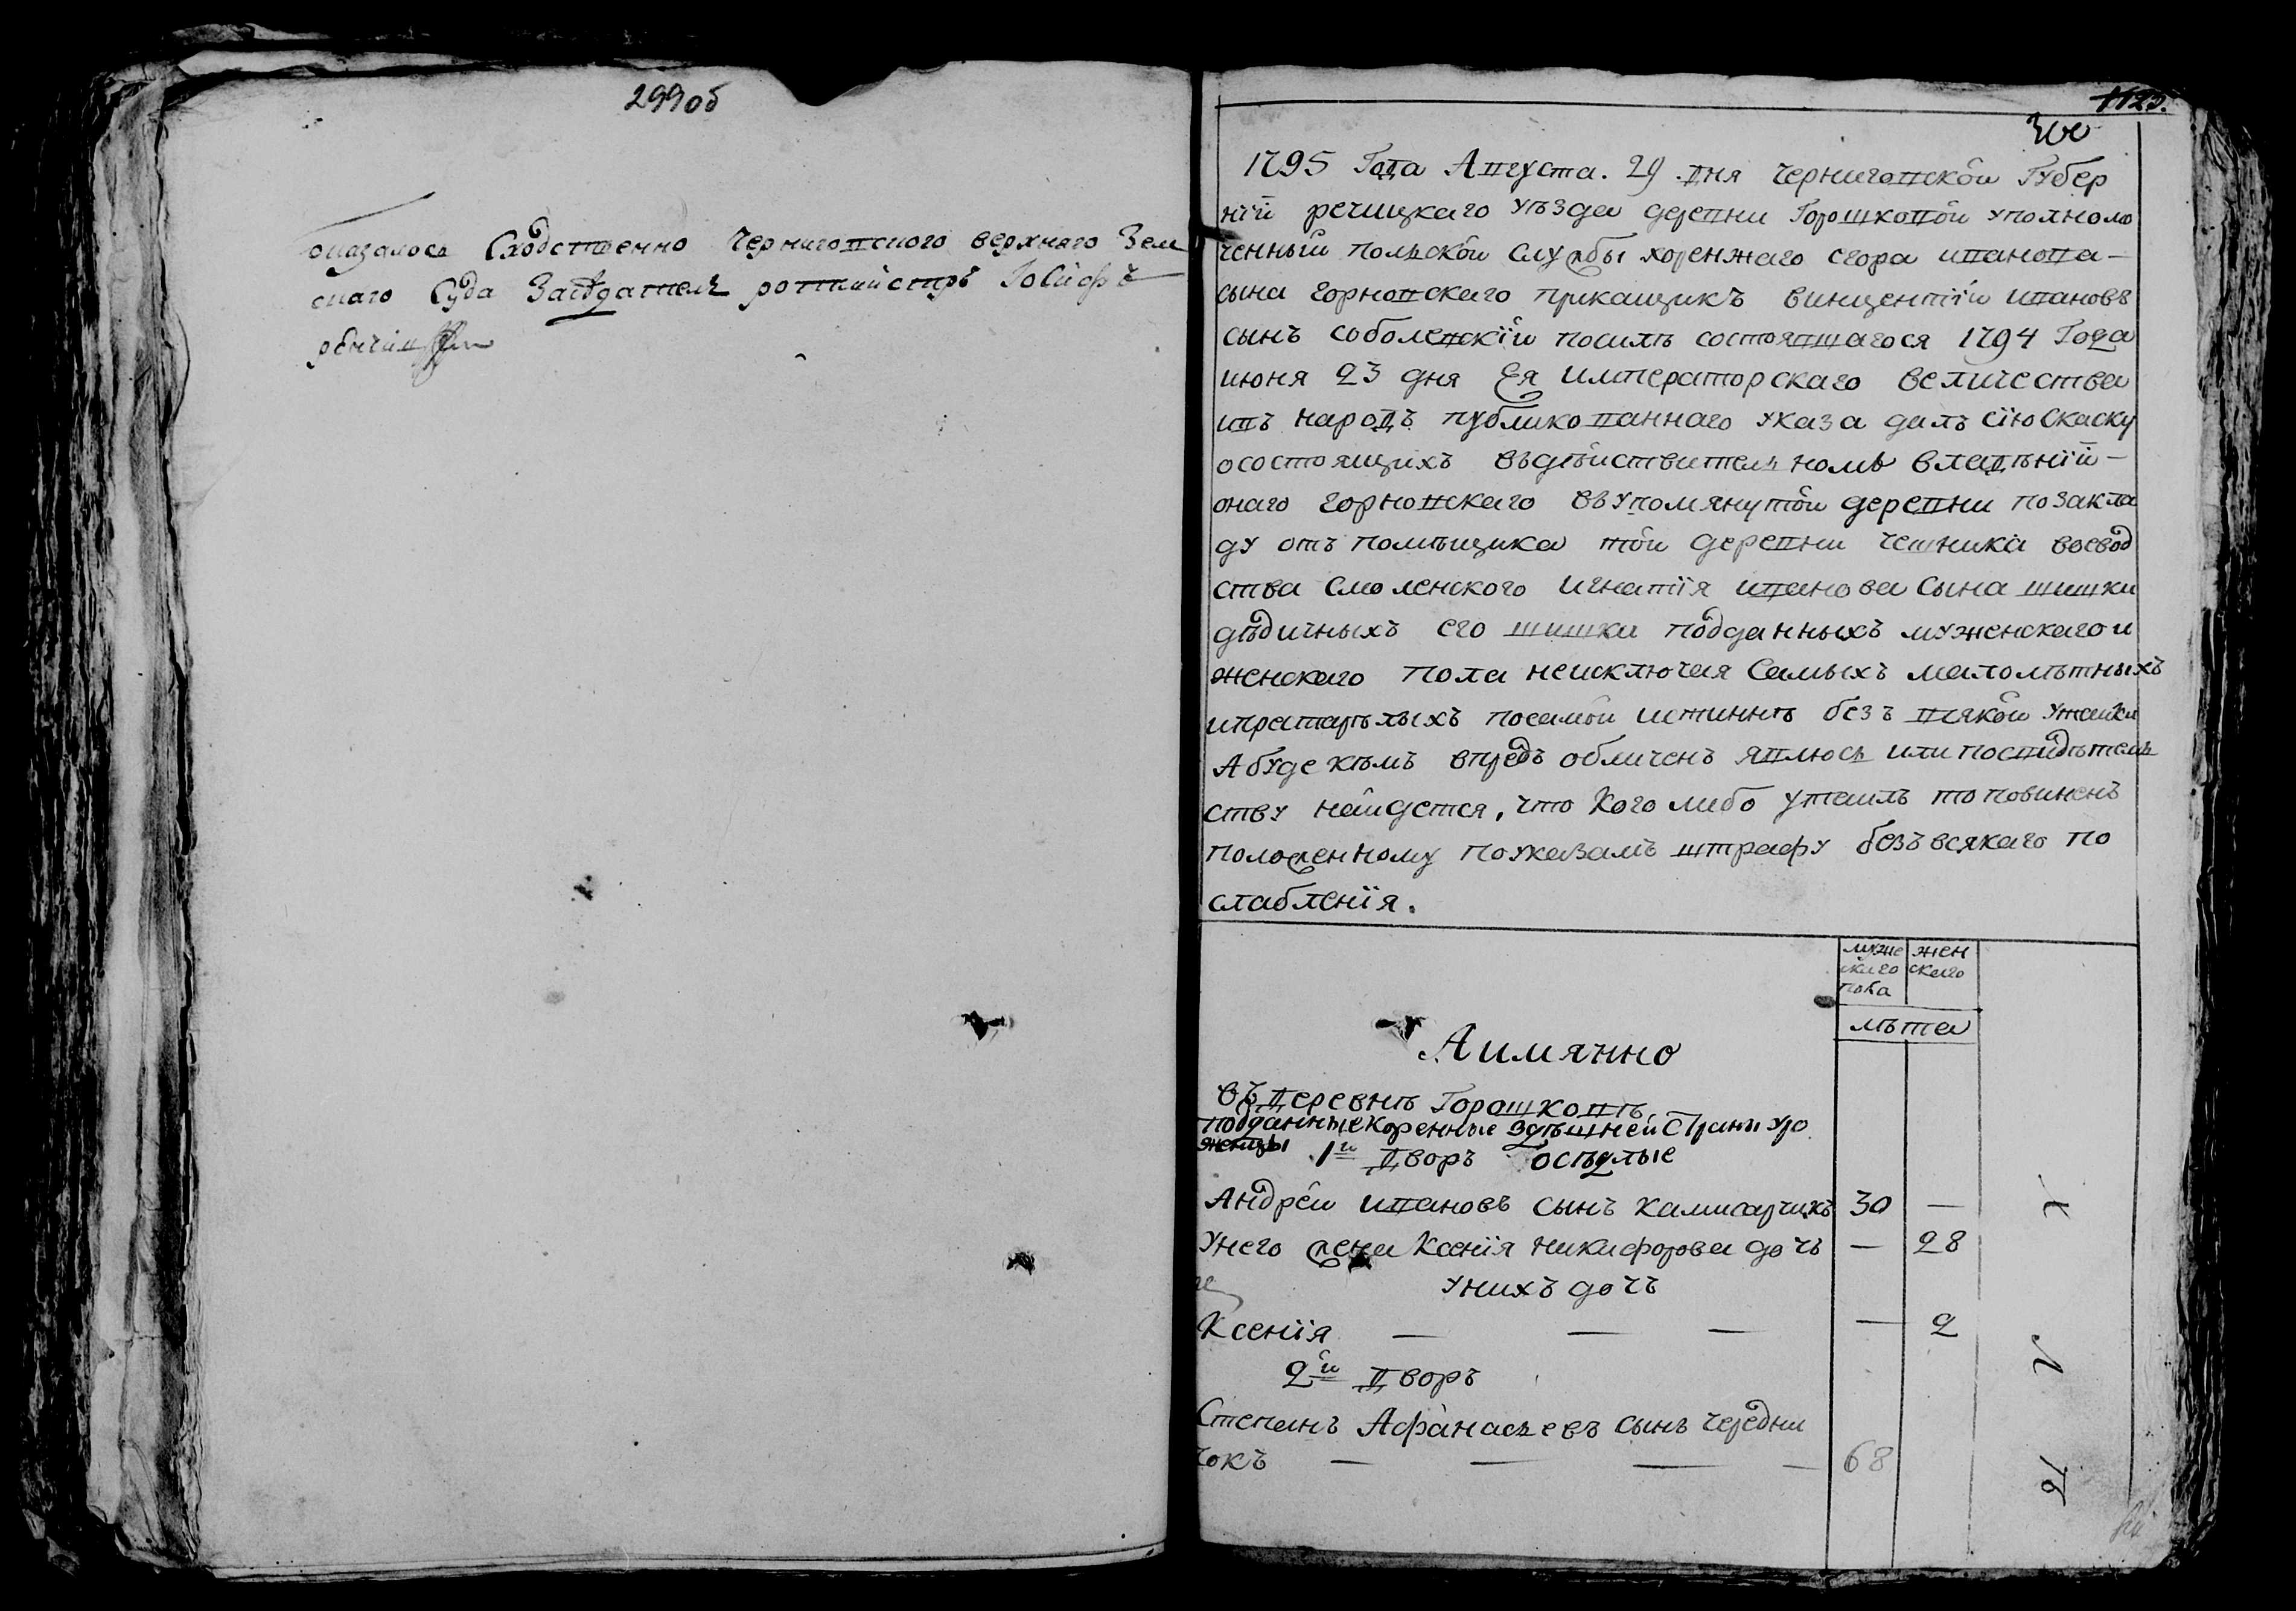 299об
оказалось Сходственно Черниговского верхняго Зем
скаго Суда Заседатель ротмистръ Іосифъ
1123.
300
1795 Года Августа. 29 дня Черниговской Губер
ніи речицкаго уъзда деревни Горошковой уполномо
ченный польской службы хоренжаго егора иванова
сына горновскаго прикащикъ винцентій ивановъ
сынъ соболевскій посилъ состоявшагося 1794 Года
июня 23 дня Ея императорскаго величества
ивъ народъ публикованнаго указа далъ сію скаску
осостоящихъ въдѣйствительномъ владѣніи
онаго горновскаго въупомянутой деревни позакла
ду отъ помѣщика той деревни чешника воевод
ства смоленского игнатія иванова сына шишки
дѣдичныхъ его шишки подданныхъ мужескаго и
женскаго пола неисключая самыхъ малолѣтныхъ
ипрестарѣлыхъ посамой истиннѣ безъ всякой утайки
А буде кѣмъ впредь обличенъ явлюсь или посвидѣтель
ству найдется, что кого либо утаилъ то повиненъ
положенному поуказамъ штрафу безъ всякаго по
слабленія.
муже жен
скаго скаго
пола
лѣта
Аимянно
въ деревнѣ Горошковѣ
подданные коренные здѣшней страны уро
женцы 1й дворъ осѣдлые
Андрей ивановъ сынъ камисарчикъ 30 —
Унего жена Ксенія никифорова дочь — 28
унихъ дочь
Ксенія — — — — 2
2й дворъ
Степанъ Афанасьевъ сынъ Чередни
чокъ — — — — 68